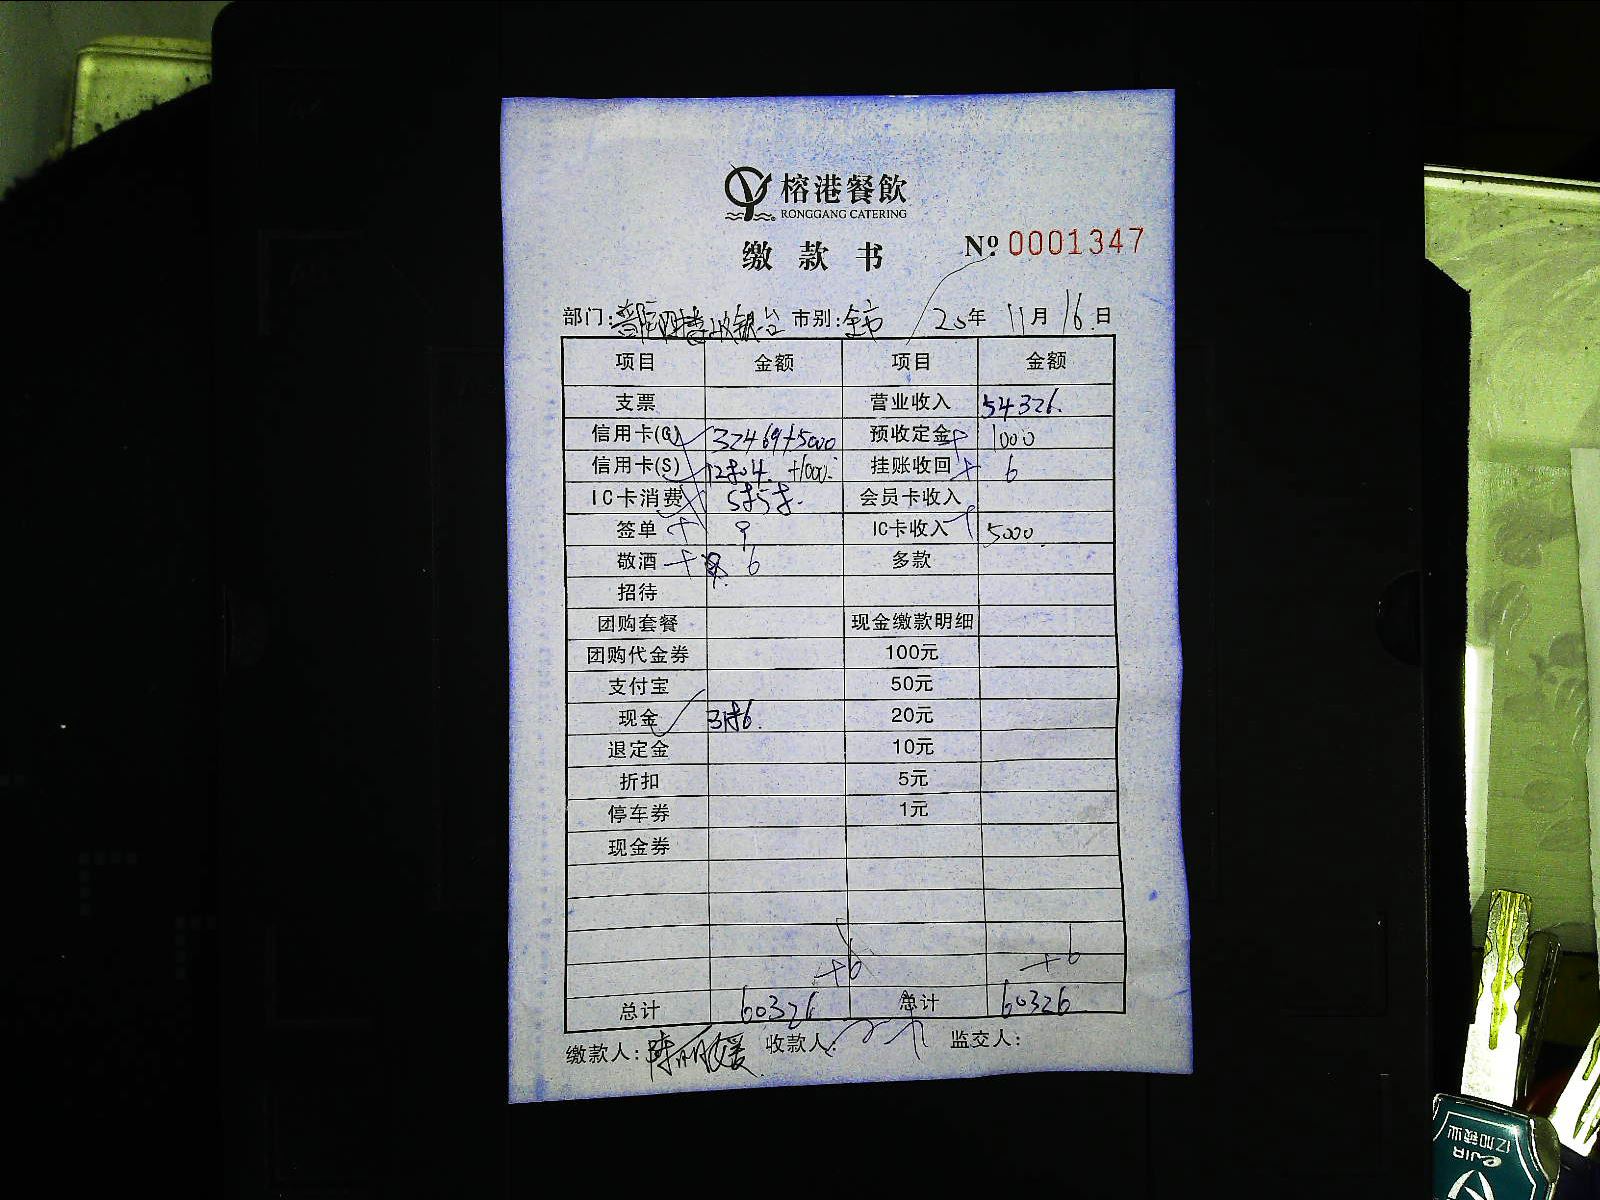 榕港餐飲
RONGGANG CATERING
缴款书 Nº 0001347
部门: 收银台 市别:全市 20年 11月 16日
项目 金额 项目 金额
支票 营业收入 54326.
信用卡(G) 32469+5000 预收定金 + 1000
信用卡(S) +1000. 挂账收回 + 6
IC卡消费 会员卡收入
签单 IC卡收入 5000
敬酒 + 6 多款
招待
团购套餐 现金缴款明细
团购代金券 100元
支付宝 50元
现金 20元
退定金 10元
折扣 5元
停车券 1元
现金券
+6 +6
总计 60326 总计 60326
缴款人: 陈丽媛 收款人: 监交人:
亿加锁业
eJIA